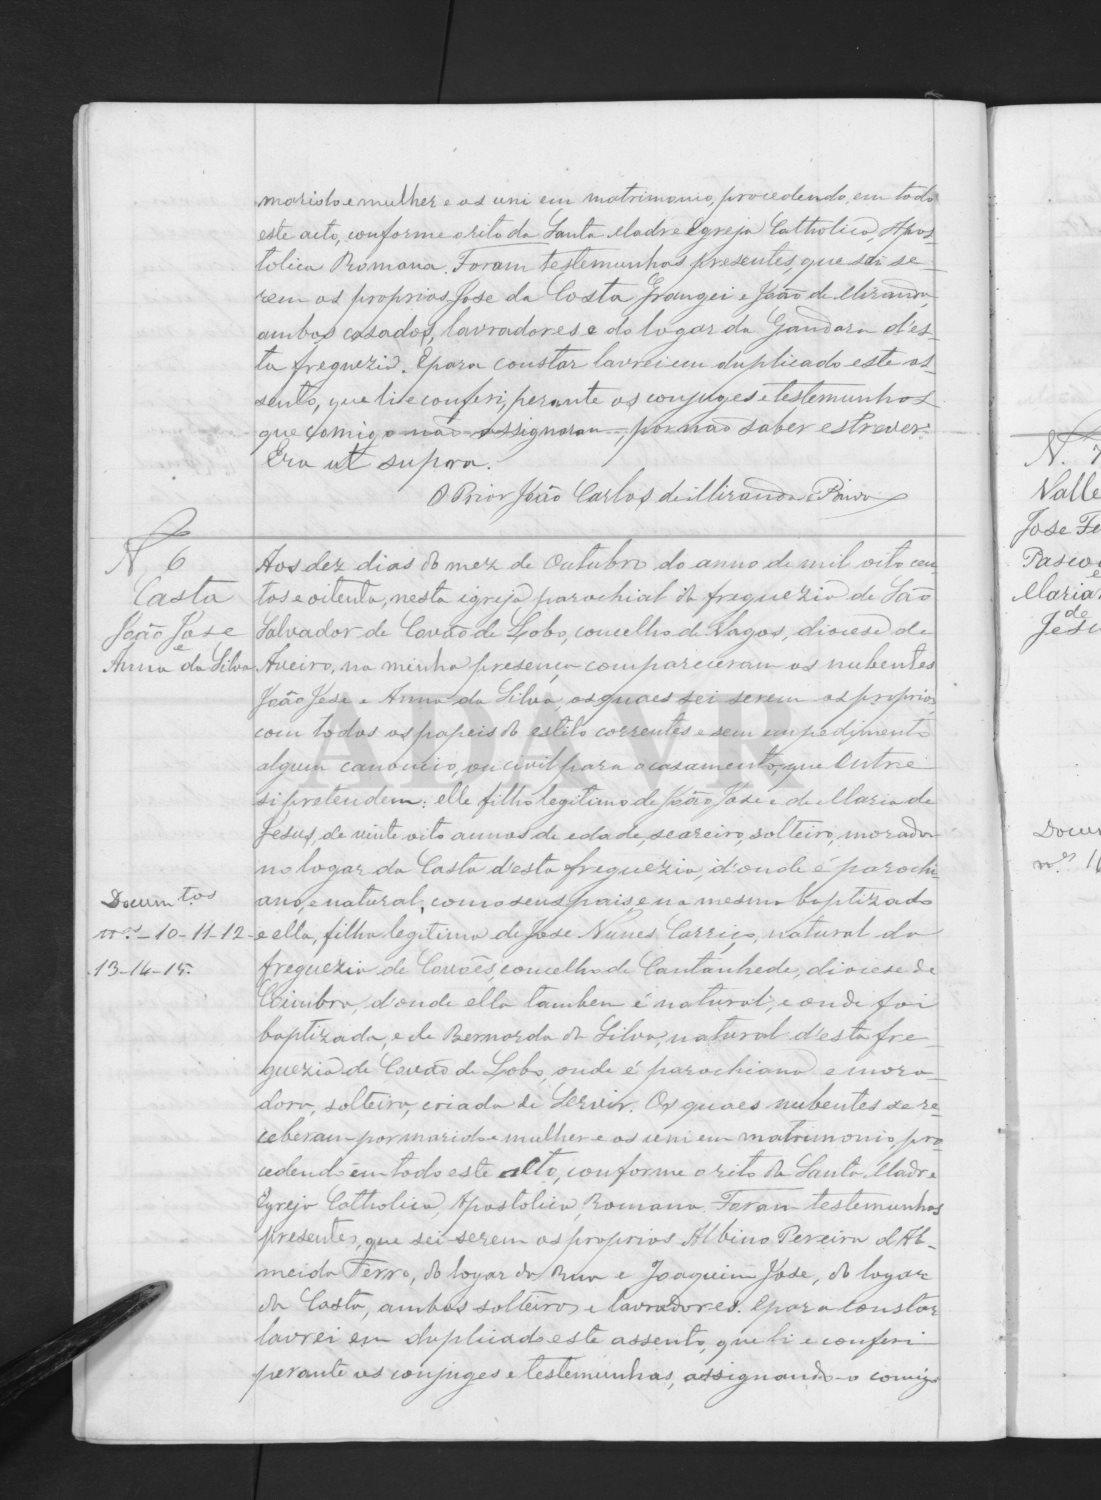 marido e mulher e os uni em matrimonio, procedendo, em todo
este acto, conforme o rito da Santa Madre Egreja Catholica, Apos-
tolica Romana. Foram testemunhas presentes, que sei se-
rem os proprios, Jose da Costa Grangei e João de Miranda,
ambos casados, lavradores e do logar da Gandara d'es-
ta freguezia. E para constar lavrei em duplicado este as-
sento, que li e conferi, perante os conjuges e testemunhas
que comigo não assignaram, por não saber escrever.
Era ut supra.
O Prior João Carlos de Miranda e Paiva
N. 6
Casta
João Jose
e
Anna da Silva
Aos dez dias do mez de Outubro do anno de mil oito cen-
tos e oitenta, nesta igreja parochial da freguezia de São
Salvador de Covão do Lobo, concelho de Vagos, diocese de
Aveiro, na minha presença compareceram os nubentes
João Jose e Anna da Silva, os quaes sei serem os proprios,
com todos os papeis do estilo correntes e sem impedimento
algum canonico, ou civil para o casamento, que entre
si pretendem: elle filho legitimo de João Jose e de Maria de
Jesus, de vinte oito annos de edade, seareiro, solteiro, morador
no logar da Casta d'esta freguezia, d'onde é parochi-
ano, e natural, como seus pais e na mesma baptizado
e ella, filha legitima de Jose Nunes Carriço, natural da
freguezia de Covões, concelho de Cantanhede, diocese de
Coimbra, d'onde ella tambem é natural, e onde foi
baptizada, e de Bernarda da Silva, natural d'esta fre-
guezia de Covão do Lobo, onde é parochiana e mora-
dora, solteira, criada de servir. Os quaes nubentes se re-
ceberam por marido e mulher e os uni em matrimonio, pro-
cedendo em todo este acto, conforme o rito da Santa Madre
Egreja Catholica, Apostolica, Romana. Foram testemunhas
presentes, que sei serem os proprios Albino Pereira d'Al-
meida Ferro, do logar da Rua e Joaquim Jose, do logar
da Casta, ambos solteiros e lavradores. E para constar
lavrei em duplicado este assento, que li e conferi
perante os conjuges e testemunhas, assignando-o comigo
Documtos
nos - 10-11-12-
13-14-15.
N. 7
Valle
Jose Fe
Pasco
e
Maria
de
Jesu
Docum
nos 16
ADAVR